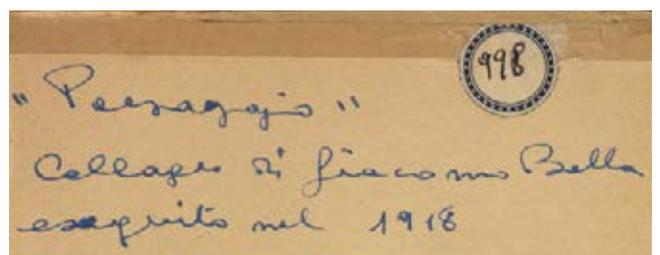 998
"Paesaggio"
Collage di Giacomo Balla
eseguito nel 1918